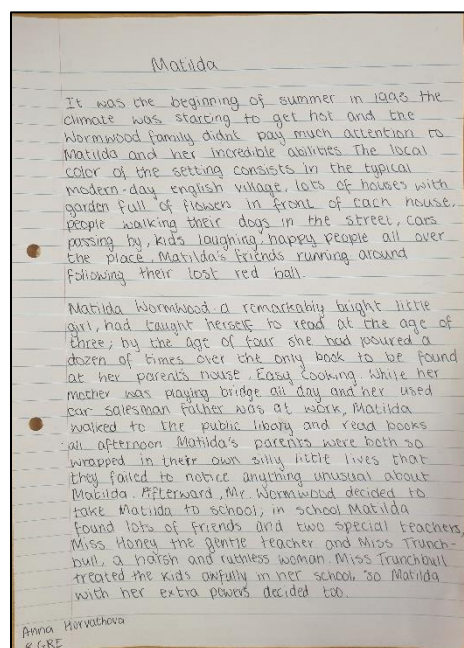 Matilda
It was the beginning of summer in 1993 the
climate was starting to get hot and the
Wormwood family didn't pay much attention to
Matilda and her incredible abilities. The local
color of the setting consists in the typical
modern-day english village, lots of houses with
garden full of flowers in front of each house,
people walking their dogs in the street, cars
passing by, kids laughing, happy people all over
the place, Matilda's friends running around
following their lost red ball.
Matilda Wormwood a remarkably bright little
girl, had taught herself to read at the age of
three; by the age of four she had poured a
dozen of times over the only book to be found
at her parent's house, Easy Cooking. While her
mother was playing bridge all day and her used
car salesman father was at work, Matilda
walked to the public libary and read books
all afternoon. Matilda's parents were both so
wrapped in their own silly little lives that
they failed to notice anything unusual about
Matilda. Afterward, Mr. Wormwood decided to
take Matilda to school, in school Matilda
found lots of friends and two special teachers,
Miss Honey the gentle teacher and Miss Trunch-
bull, a harsh and ruthless woman. Miss Trunchbull
treated the kids awfully in her school, so Matilda
with her extra powers decided too.
Anna Horvathova
8.GRE